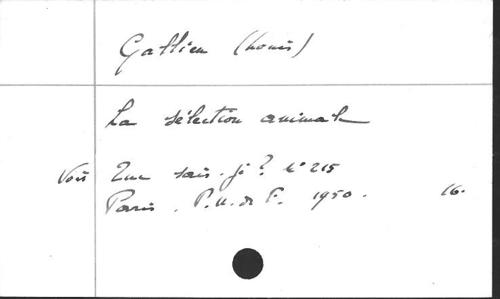 Gallien (Louis)
La sélection animale
Voir Que sais-je? N° 215
Paris. P.U. de F. 1950. 16.